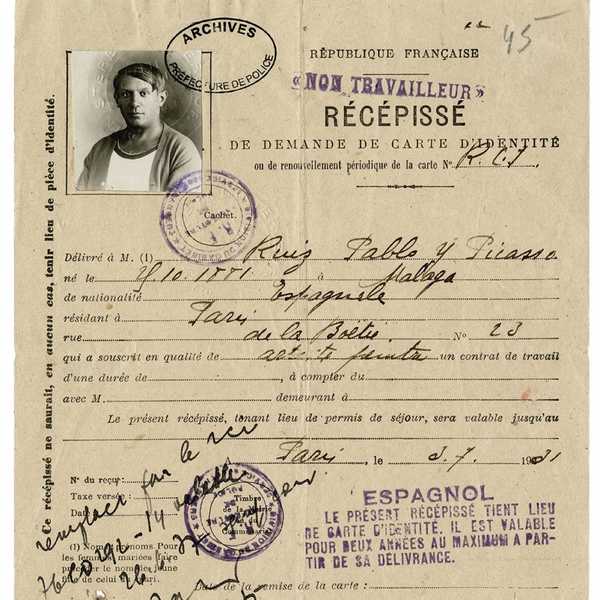 45
ARCHIVES
PRÉFECTURE DE POLICE
RÉPUBLIQUE FRANÇAISE
"NON TRAVAILLEUR"
RÉCÉPISSÉ
DE DEMANDE DE CARTE D'IDENTITÉ
ou de renouvellement périodique de la carte No R.C.I.
Cachet.
Délivré à M. (1) Ruiz Pablo y Picasso
né le 10.1881 à Malaga
de nationalité Espagnole
résidant à Paris
rue de la Boëtie No 23
qui a souscrit en qualité de artiste peintre un contrat de travail
d'une durée de , à compter du
avec M. demeurant à
Le présent récépissé, tenant lieu de permis de séjour, sera valable jusqu'au
Paris , le 3.7. 1931
No du reçu:
Taxe versée:
Date
Timbre
remplacé par le
(1) Nom et prénoms. Pour
les femmes mariées faire
précéder le nom de jeune
fille de celui du mari.
ESPAGNOL
LE PRÉSENT RÉCÉPISSÉ TIENT LIEU
DE CARTE D'IDENTITÉ. IL EST VALABLE
POUR DEUX ANNÉES AU MAXIMUM A PAR-
TIR DE SA DÉLIVRANCE.
Date de la remise de la carte:
Ce récépissé ne saurait, en aucun cas, tenir lieu de pièce d'identité.